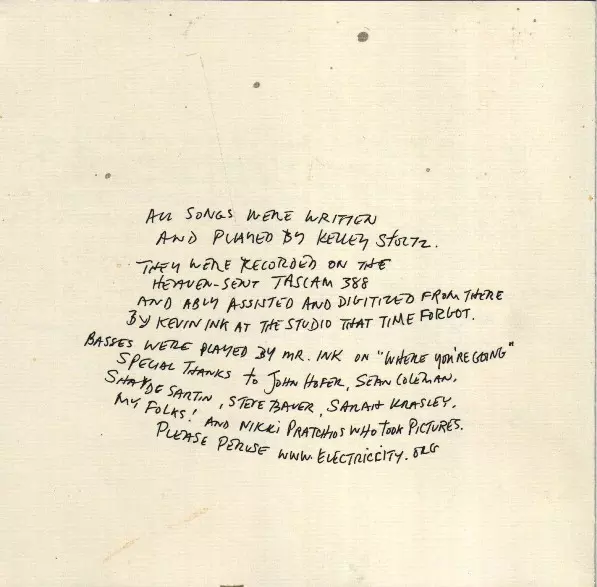 ALL SONGS WERE WRITTEN
AND PLAYED BY KELLEY STOLTZ.
THEY WERE RECORDED ON THE
HEAVEN-SENT TASCAM 388
AND ABLY ASSISTED AND DIGITIZED FROM THERE
BY KEVIN INK AT THE STUDIO THAT TIME FORGOT.
BASSES WERE PLAYED BY MR. INK ON "WHERE YOU'RE GOING"
SPECIAL THANKS to JOHN HOFER, SEAN COLEMAN,
SHAYDE SARTIN, STEVE BAVER, SARAH KRASLEY,
MY FOLKS! AND NIKKI PRATCHIOS WHO TOOK PICTURES.
PLEASE PERUSE WWW.ELECTRICCITY.ORG